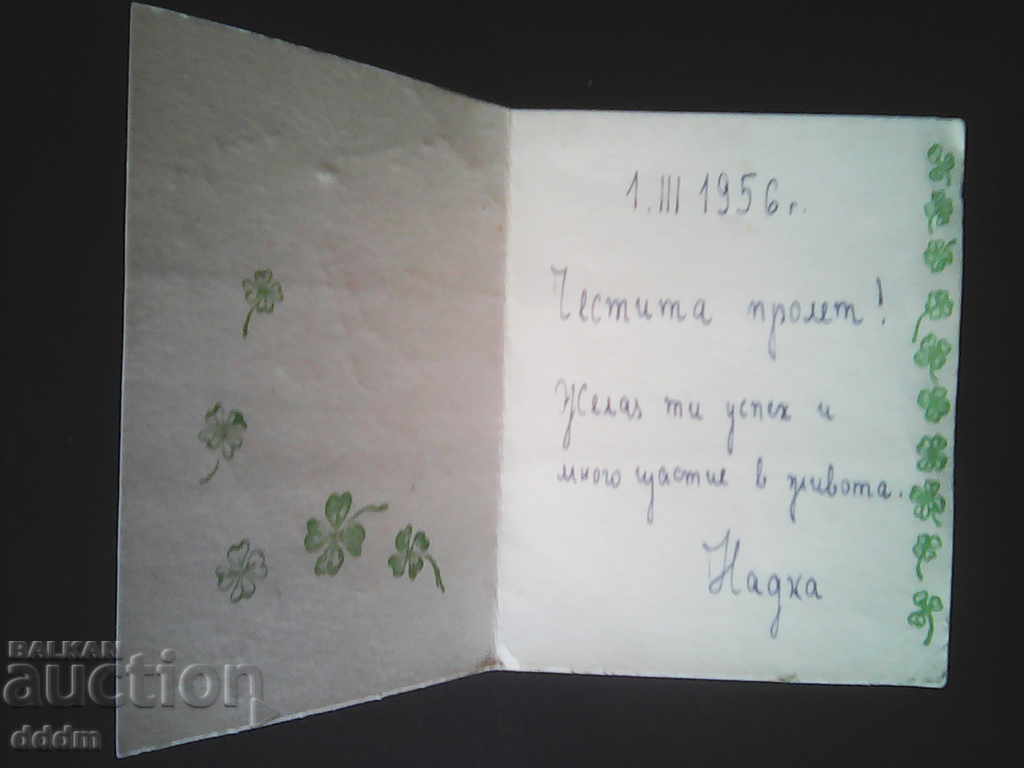 1.III 1956 г.
Честита пролет!
Желая ти успех и
много щастие в живота.
Надка
BALKAN
auction
dddm